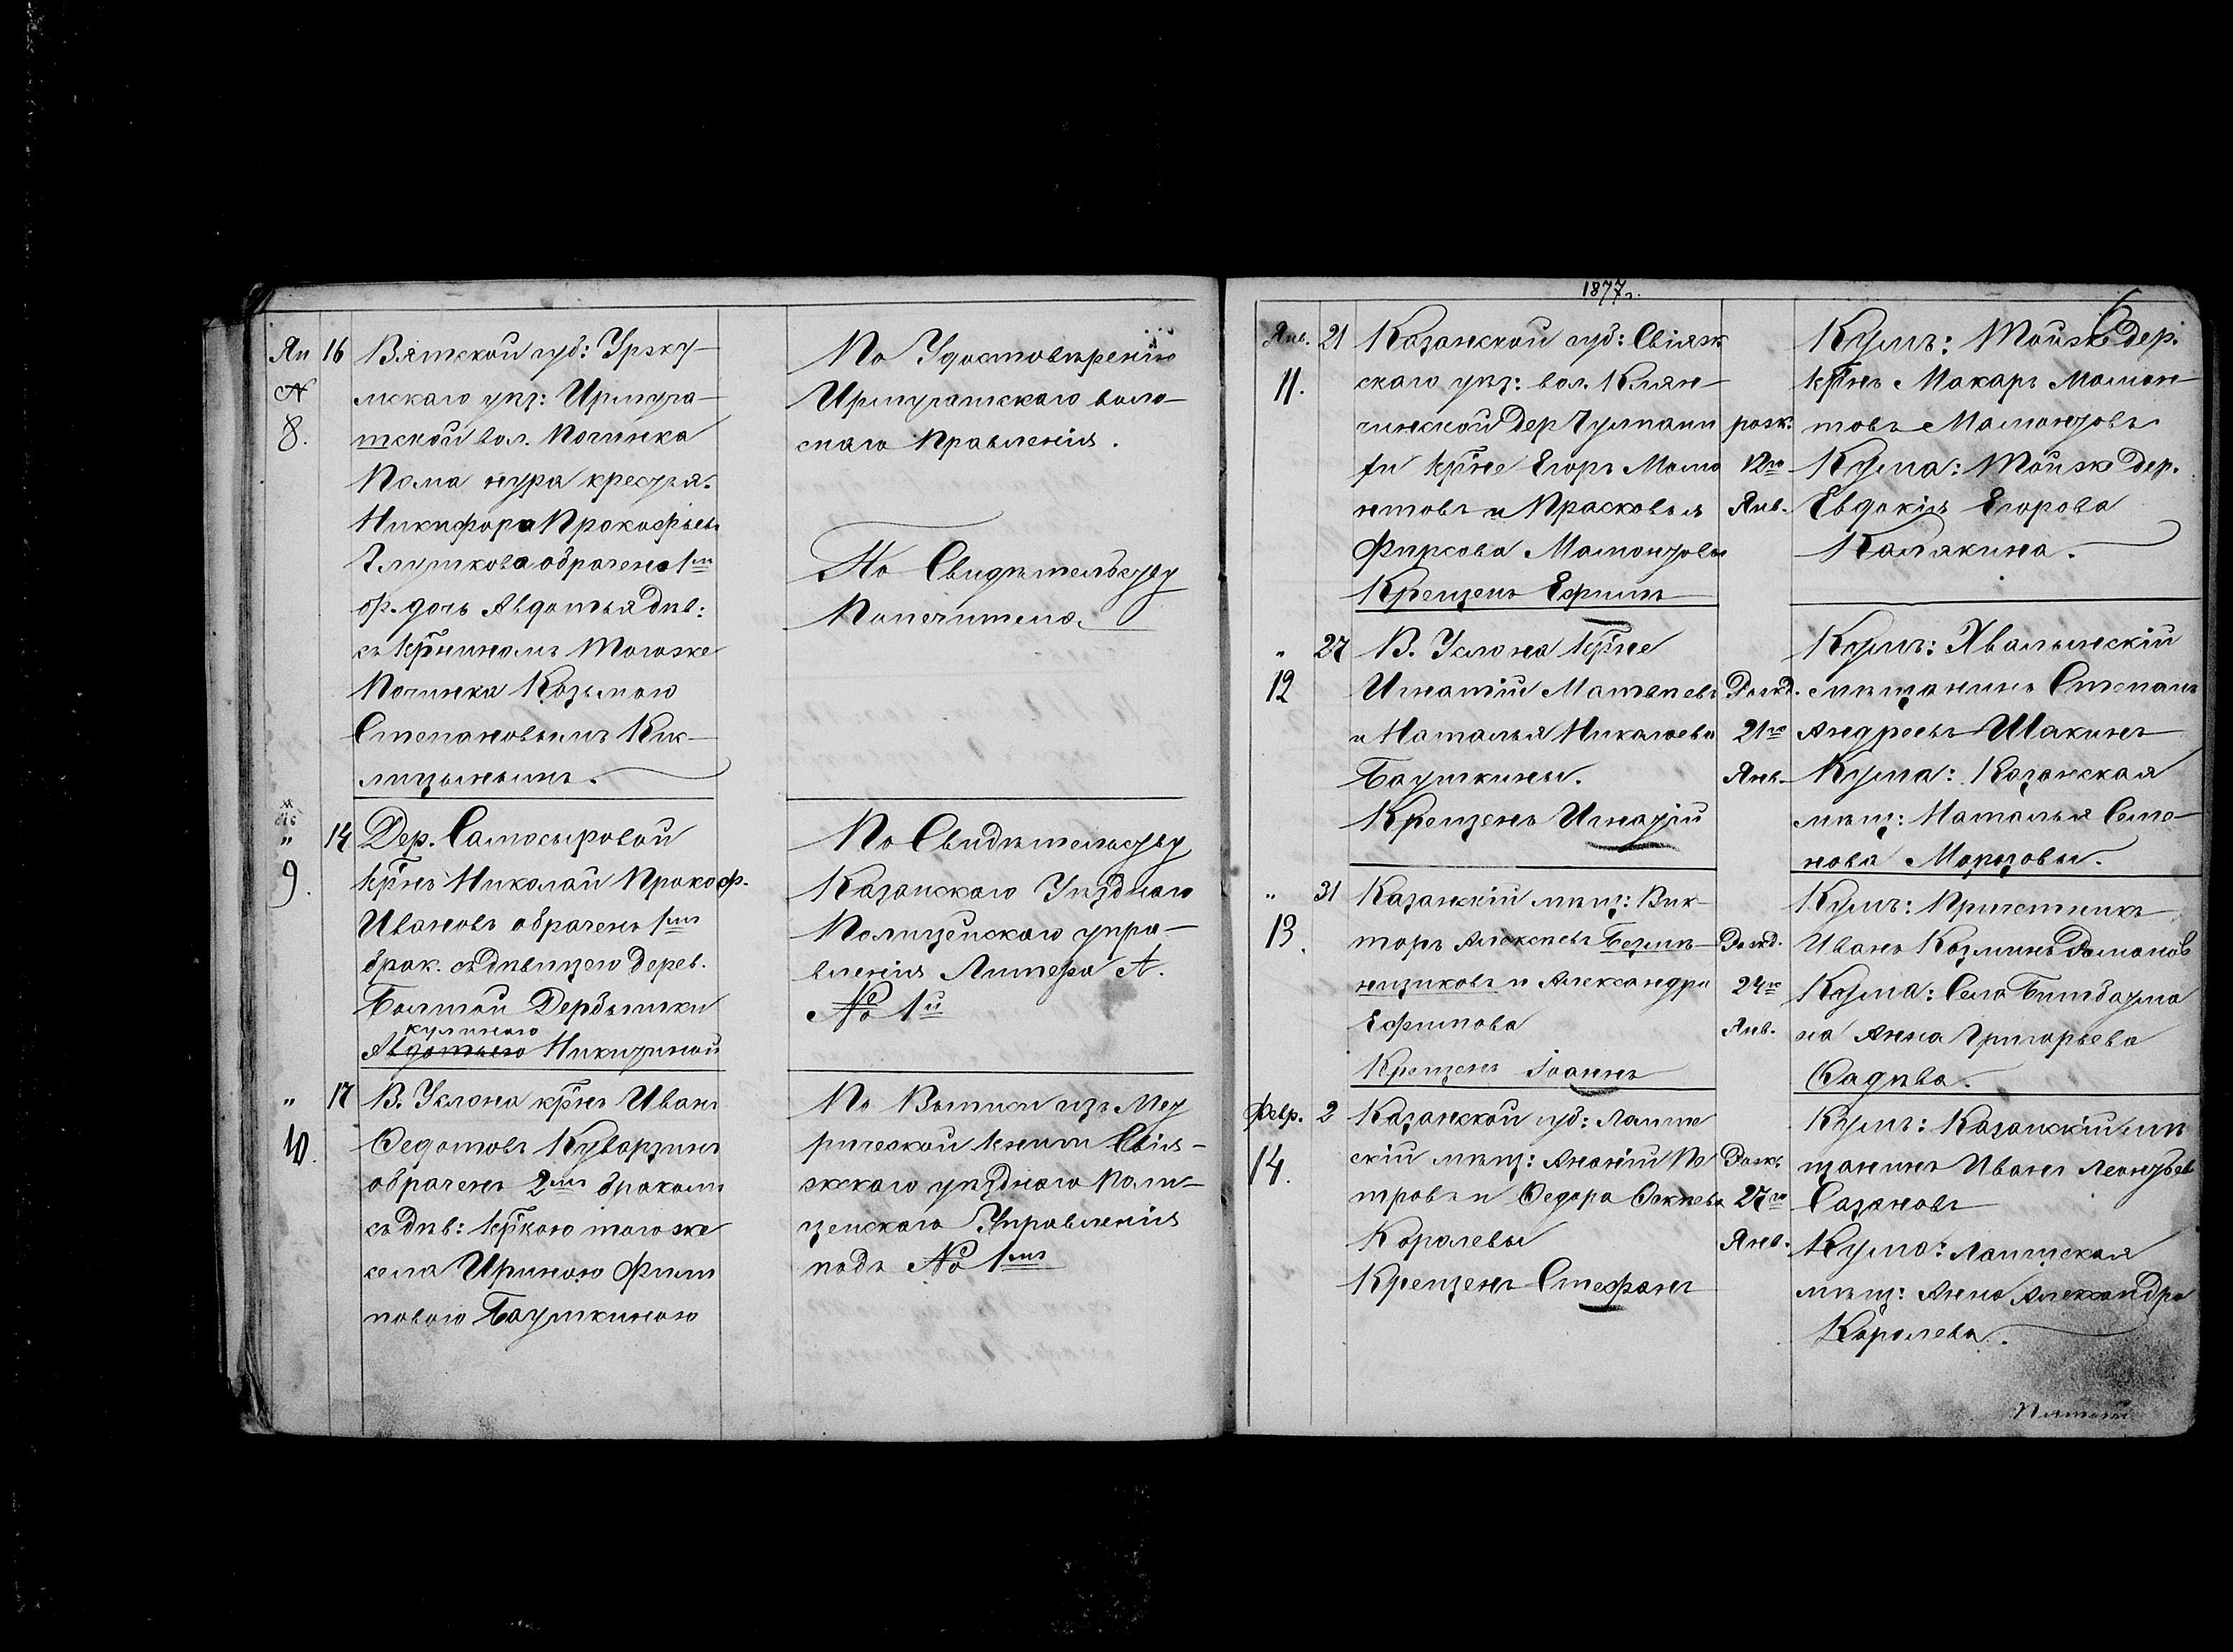 Ян 16 Вятской губ: Уржу-
№ мскаго уѣз: Иртуга-
8. тской вол. Починка
Пома нура крестья.
Никифора Прокофьев.
Глушкова обрачена 1мъ
бр. дочь Авдотья дѣв:
съ кр̃ниномъ тогоже
Починка Козьмою
Степановымъ Кик-
лицынымъ.
По Удостовѣренію
Иртугатскаго воло-
снаго Правленія.
По Свидѣтельству
Попечителя.
" 14 Дер. Самосыровой
9. кр̃нъ Николай Прокоф.
Ивановъ обраченъ 1мъ
брак. съ дѣвицею дерев.
Болшой Дербышки
кулиною
Авдотьею Никитиной
По Свидѣтельству
Казанскаго Уѣзднаго
Полицейскаго упра-
вленія Литера А.
№ 1й
" 17 В. Услона кр̃нъ Иванъ
10. Ѳедотовъ Куварзинъ
обраченъ 2мъ бракомъ
съ дѣв: кр̃кою тогоже
села Ириною Фили
повою Баушкиною
По Выписи изъ Мет
рической книги Свія-
жскаго уѣзднаго Поли-
цейскаго Управленія
подъ № 1мъ
1877г.
6
Янв. 21 Казанской губ: Свіяж
11. скаго уѣз: вол. Клян-
чинской дер Гуташи
кр̃не Егоръ Мамо
нтовъ и Прасковья
Фирсова Мамонтовы
Крещенъ Ефимъ
рожд:
12го
Янв.
Кумъ: Тойже дер.
кр̃нъ Макаръ Мамон-
товъ Мамонтовъ
Кума: Тойже дер.
Евдокія Егорова
Калякина.
" 27 В. Услона кр̃не
12 Игнатій Матвѣевъ
и Наталья Николаевы
Баушкины.
Крещенъ Игнатій
Рожд.
21го
Янв.
Кумъ: Хвалынскій
мѣщанинъ Степанъ
Андреевъ Шакинъ
Кума: Казанская
мѣщ: Наталья Семе-
нова Морозовы.
" 31 Казанскій мѣщ: Вик-
13. торъ Алексѣевъ Безмѣ-
ницыковъ и Александра
Ефимова
Крещенъ Іоаннъ
Рожд.
24го
Янв.
Кумъ: Причетникъ
Иванъ Козминъ Домонов
Кума: Села Битбатма
на Анна Григорьева
Ѳадѣва.
Февр. 2 Казанской губ: Лаише
14. скій мѣщ: Ананій Пе
тровъ и Ѳедора
Королевы
Крещенъ Стефанъ
Рожд.
27го
Янв.
Кумъ: Казанскій мѣ
щанинъ Иванъ Леонтьев
Сазановъ
Кума: Лаишская
мѣщ: Анна Александра
Королева.
Пятый